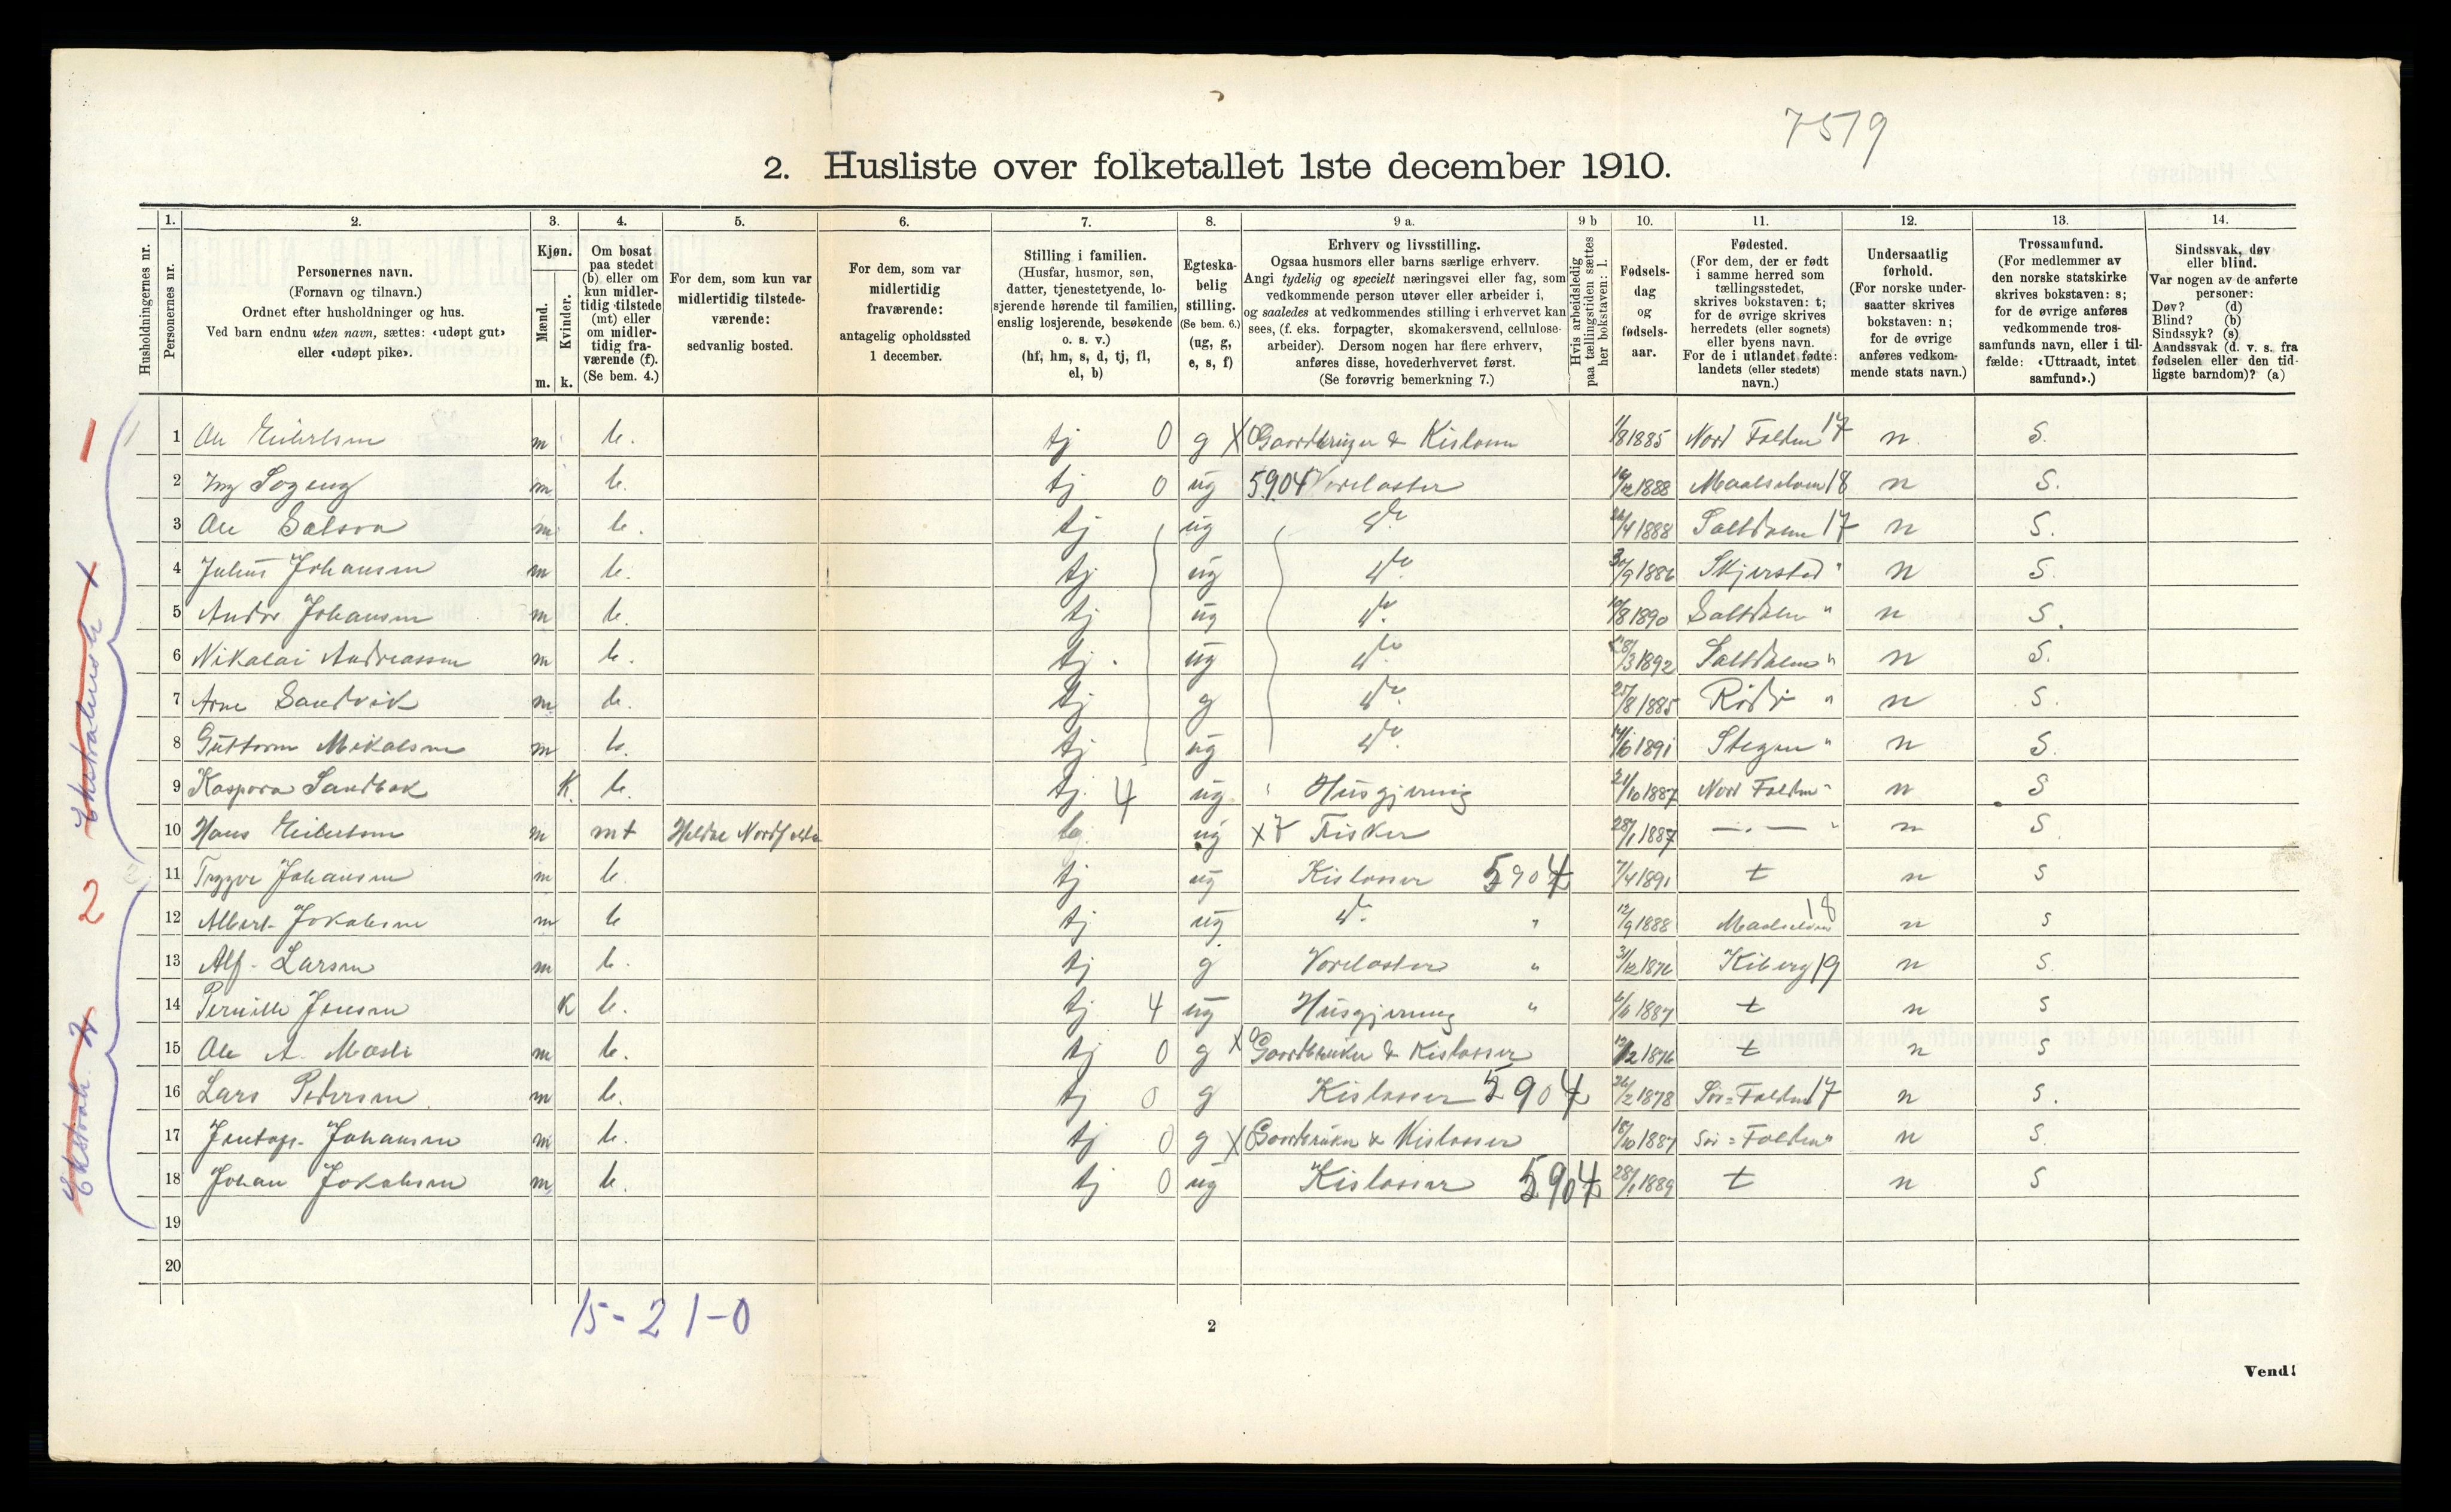 7519
2. Husliste over folketallet 1ste december 1910.
1. 2. 3. 4. 5. 6. 7. 8. 9 a. 9 b 10. 11. 12. 13. 14.
Husholdningernes nr.
Personernes nr.
Personernes navn.
(Fornavn og tilnavn.)
Ordnet efter husholdninger og hus.
Ved barn endnu uten navn, sættes: «udøpt gut»
eller «udøpt pike».
Kjøn.
Mænd.
Kvinder.
m. k.
Om bosat
paa stedet
(b) eller om
kun midler-
tidig tilstede
(mt) eller
om midler-
tidig fra-
værende (f).
(Se bem. 4.)
For dem, som kun var
midlertidig tilstede-
værende:
sedvanlig bosted.
For dem, som var
midlertidig
fraværende:
antagelig opholdssted
1 december.
Stilling i familien.
(Husfar, husmor, søn,
datter, tjenestetyende, lo-
sjerende hørende til familien,
enslig losjerende, besøkende
o. s. v.)
(hf, hm, s, d, tj, fl,
el, b)
Egteska-
belig
stilling.
(Se bem. 6.)
(ug, g,
e, s, f)
Erhverv og livsstilling.
Ogsaa husmors eller barns særlige erhverv.
Angi tydelig og specielt næringsvei eller fag, som
vedkommende person utøver eller arbeider i,
og saaledes at vedkommendes stilling i erhvervet kan
sees, (f. eks. forpagter, skomakersvend, cellulose-
arbeider). Dersom nogen har flere erhverv,
anføres disse, hovederhvervet først.
(Se forøvrig bemerkning 7.)
Hvis arbeidsledig
paa tællingstiden sættes
her bokstaven: l.
Fødsels-
dag
og
fødsels-
aar.
Fødested.
(For dem, der er født
i samme herred som
tællingsstedet,
skrives bokstaven: t;
for de øvrige skrives
herredets (eller sognets)
eller byens navn.
For de i utlandet fødte:
landets (eller stedets)
navn.)
Undersaatlig
forhold.
(For norske under-
saatter skrives
bokstaven: n;
for de øvrige
anføres vedkom-
mende stats navn.)
Trossamfund.
(For medlemmer av
den norske statskirke
skrives bokstaven: s;
for de øvrige anføres
vedkommende tros-
samfunds navn, eller i til-
fælde: «Uttraadt, intet
samfund».)
Sindssvak, døv
eller blind.
Var nogen av de anførte
personer:
Døv? (d)
Blind? (b)
Sindssyk? (s)
Aandssvak (d. v. s. fra
fødselen eller den tid-
ligste barndom)? (a)
1 m b. tj 0 g X 1/8 1885 Nord Folden 17 n. S.
2 m b. tj 0 ug 5904 1888 18 n S.
3 Ole m b. tj ug do 26/4 1888 Saltdalen 17 n S.
4 Julius Johansen m b. tj ug do 30/9 1886 Skjerstad " n S.
5 Andor Johansen m b. tj ug do 10/8 1890 Saltdalen " n S.
6 Nikolai Andreassen m b. tj. ug do 1892 Saltdalen " n S.
7 Arne Sandvik m b. tj g do 25/8 1885 Rødø " n S.
8 Guttorm Mikalsen m b. tj ug do 1891 Stegen " n S.
9 Kaspara Sandbak K. b. tj. 4 ug Husgjerning 21/10 1887 Nord Folden " n S
10 Hans Eilertsen m mt ug X Fisker 28/1 1887 —.— " n S.
11 Trygve Johansen m b. tj ug Kislosser 5904 7/4 1891 t n S
12 Albert Jokalsen m b tj ug do " 12/9 1888 18 n s
13 Alf Larsen m b. tj g " 31/12 1876 Kiberg 19 n S.
14 Pernille Jensen K b. tj 4 ug Husgjerning " 1887 t n S
15 Ole A. m b. tj 0 g X Gaardbruker & Kislosser 1876 t n S
16 Lars Pedersen. m b. tj 0 g Kislosser 5904 26/2 1878 Sør=Folden 17 n S.
17 Johansen m b. tj 0 g X Gaardbruker & Kislosser 18/10 1887 Sør=Folden " n S.
18 Johan Jokalsen m b. tj 0 ug Kislosser 5904 28/1 1889 t n S
19
20
15-2 1-0
2
Vend!